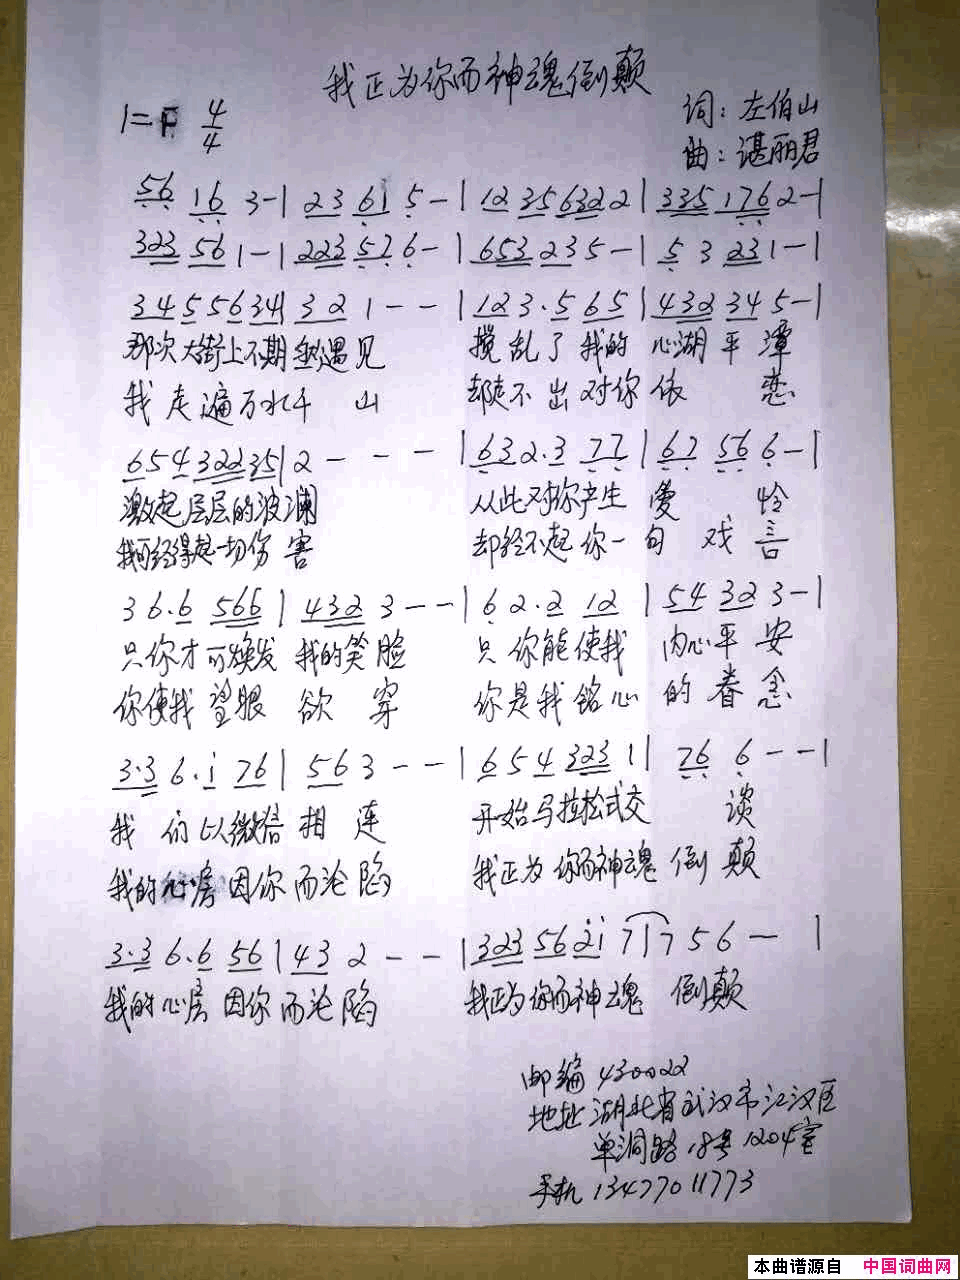 我正为你而神魂倒颠
1=F 4/4
词：左伯山
曲：谌丽君
56 16 3-| 23 6i 5-| 12 35 632 2| 335 176 2-|
323 56 1-| 223 57 6-| 653 23 5-| 5 3 231-|
34 5 56 34| 32 1--| 123·5 65| 432 34 5-|
那次大街上不期 遇见 搅乱了我的 心湖平
我走遍万水千 山 却走不出对你依 恋
654 32235| 2---| 632·3 77| 67 56 6-|
激起层层的波澜 从此对你产生 爱 怜
我可经得起一切伤害 却经不起你一句 戏言
36·6 566| 432 3--| 62·2 12| 54 32 3-|
只你才可焕发 我的笑脸 只你能使我 内心平安
你使我望眼 欲穿 你是我铭心 的眷念
3·3 6·i 76| 56 3--| 654 323 1| 76 6--|
我们以微信相连 开始马拉松式交 谈
我的心房因你而沦陷 我正为你而神魂 倒颠
3·3 6·6 56| 43 2--| 323 56 2i 7|7 56- |
我的心房因你而沦陷 我正为你而神魂 倒颠
邮编 430022
地址 湖北省武汉市江汉区
单洞路18号1204室
手机 13477011773
本曲谱源自 中国词曲网